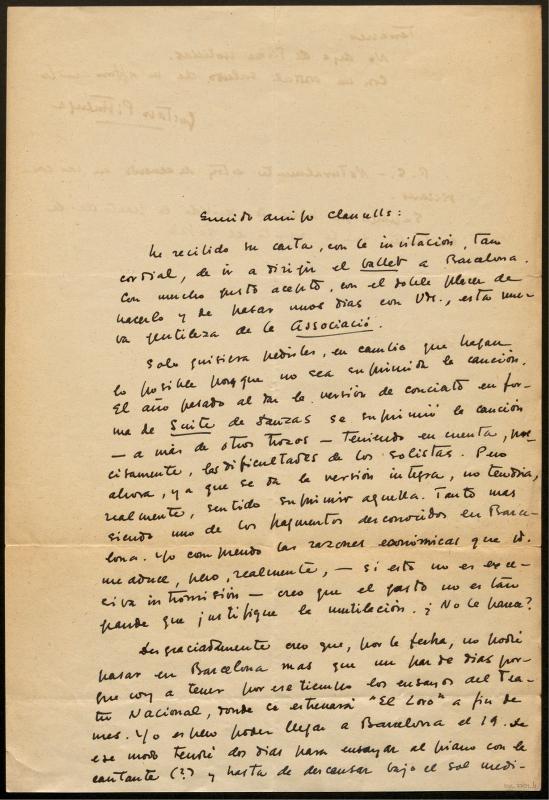 Querido amigo Clausells:
he recibido su carta, con la invitación, tan
cordial, de ir a dirigir el ballet a Barcelona.
Con mucho gusto acepto, con el doble placer de
hacerlo y de pasar unos dias con Vds., esta nue-
va gentileza de la Associació.
Solo quisiera pedirles, en cambio que hagan
lo posible porque no sea suprimida la canción.
El año pasado al dar la versión de concierto en for-
ma de Suite de danzas se suprimió la canción
— a más de otros trozos — teniendo en cuenta, pre-
cisamente, las dificultades de los solistas. Pero
ahora, ya que se da la versión integra, no tendria,
realmente, sentido suprimir aquella. Tanto mas
siendo uno de los fragmentos desconocidos en Barce-
lona. Yo comprendo las razones económicas que Vd.
me aduce, pero, realmente, — si esto no es exce-
civa intromisión — creo que el gasto no es tan
grande que justifique la mutilación. ¿No le parece?
Desgraciadamente creo que, por la fecha, no podré
pasar en Barcelona mas que un par de dias por-
que voy a tener por ese tiempo los ensayos del Tea-
tro Nacional, donde se estrenará "El Loro" a fin de
mes. Yo espero poder llegar a Barcelona el 19. De
ese modo tendré dos dias para ensayar al piano con la
cantante (?) y hasta de descansar bajo el sol medi-